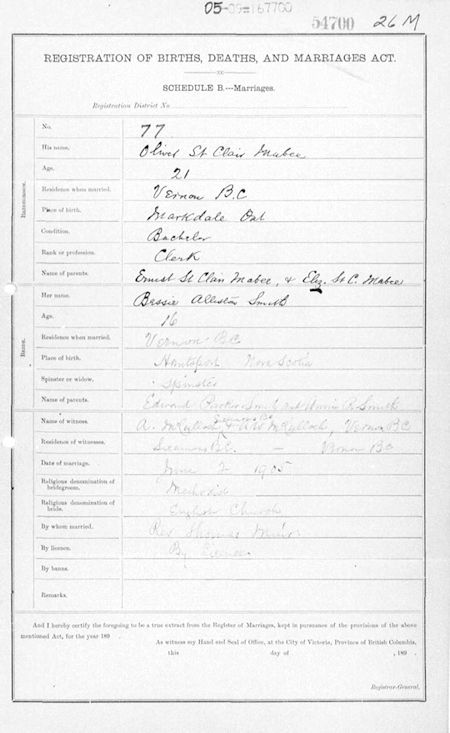 05-09-167700
54700 26 M
REGISTRATION OF BIRTHS, DEATHS, AND MARRIAGES ACT.
SCHEDULE B.---Marriages.
Registration District No
No. 77
His name, Oliver St Clair Mabee
Age. 21
Residence when married. Vernon B.C
Place of birth. Markdale Ont
Condition. Bachelor
Rank or profession. Clerk
Name of parents. Ernest St Clair Mabee, & Eliz. St C. Mabee
Her name, Bessie Allister Smith
Age. 16
Residence when married. Vernon BC
Place of birth. Hantsport Nova Scotia
Spinster or widow. Spinster
Name of parents. Edward Smith and R Smith
Name of witness. A. McCulloch & McCulloch, Vernon BC
Residence of witnesses. Sicamous B.C. — Vernon BC
Date of marriage. June 2 1905
Religious denomination of bridegroom. Methodist
Religious denomination of bride. English Church
By whom married. Rev Thomas
By licence. By Licence
By banns.
Remarks.
Bridegroom.
Bride.
And I hereby certify the foregoing to be a true extract from the Register of Marriages, kept in pursuance of the provisions of the above
mentioned Act, for the year 189 .
As witness my Hand and Seal of Office, at the City of Victoria, Province of British Columbia,
this day of , 189 .
Registrar-General.